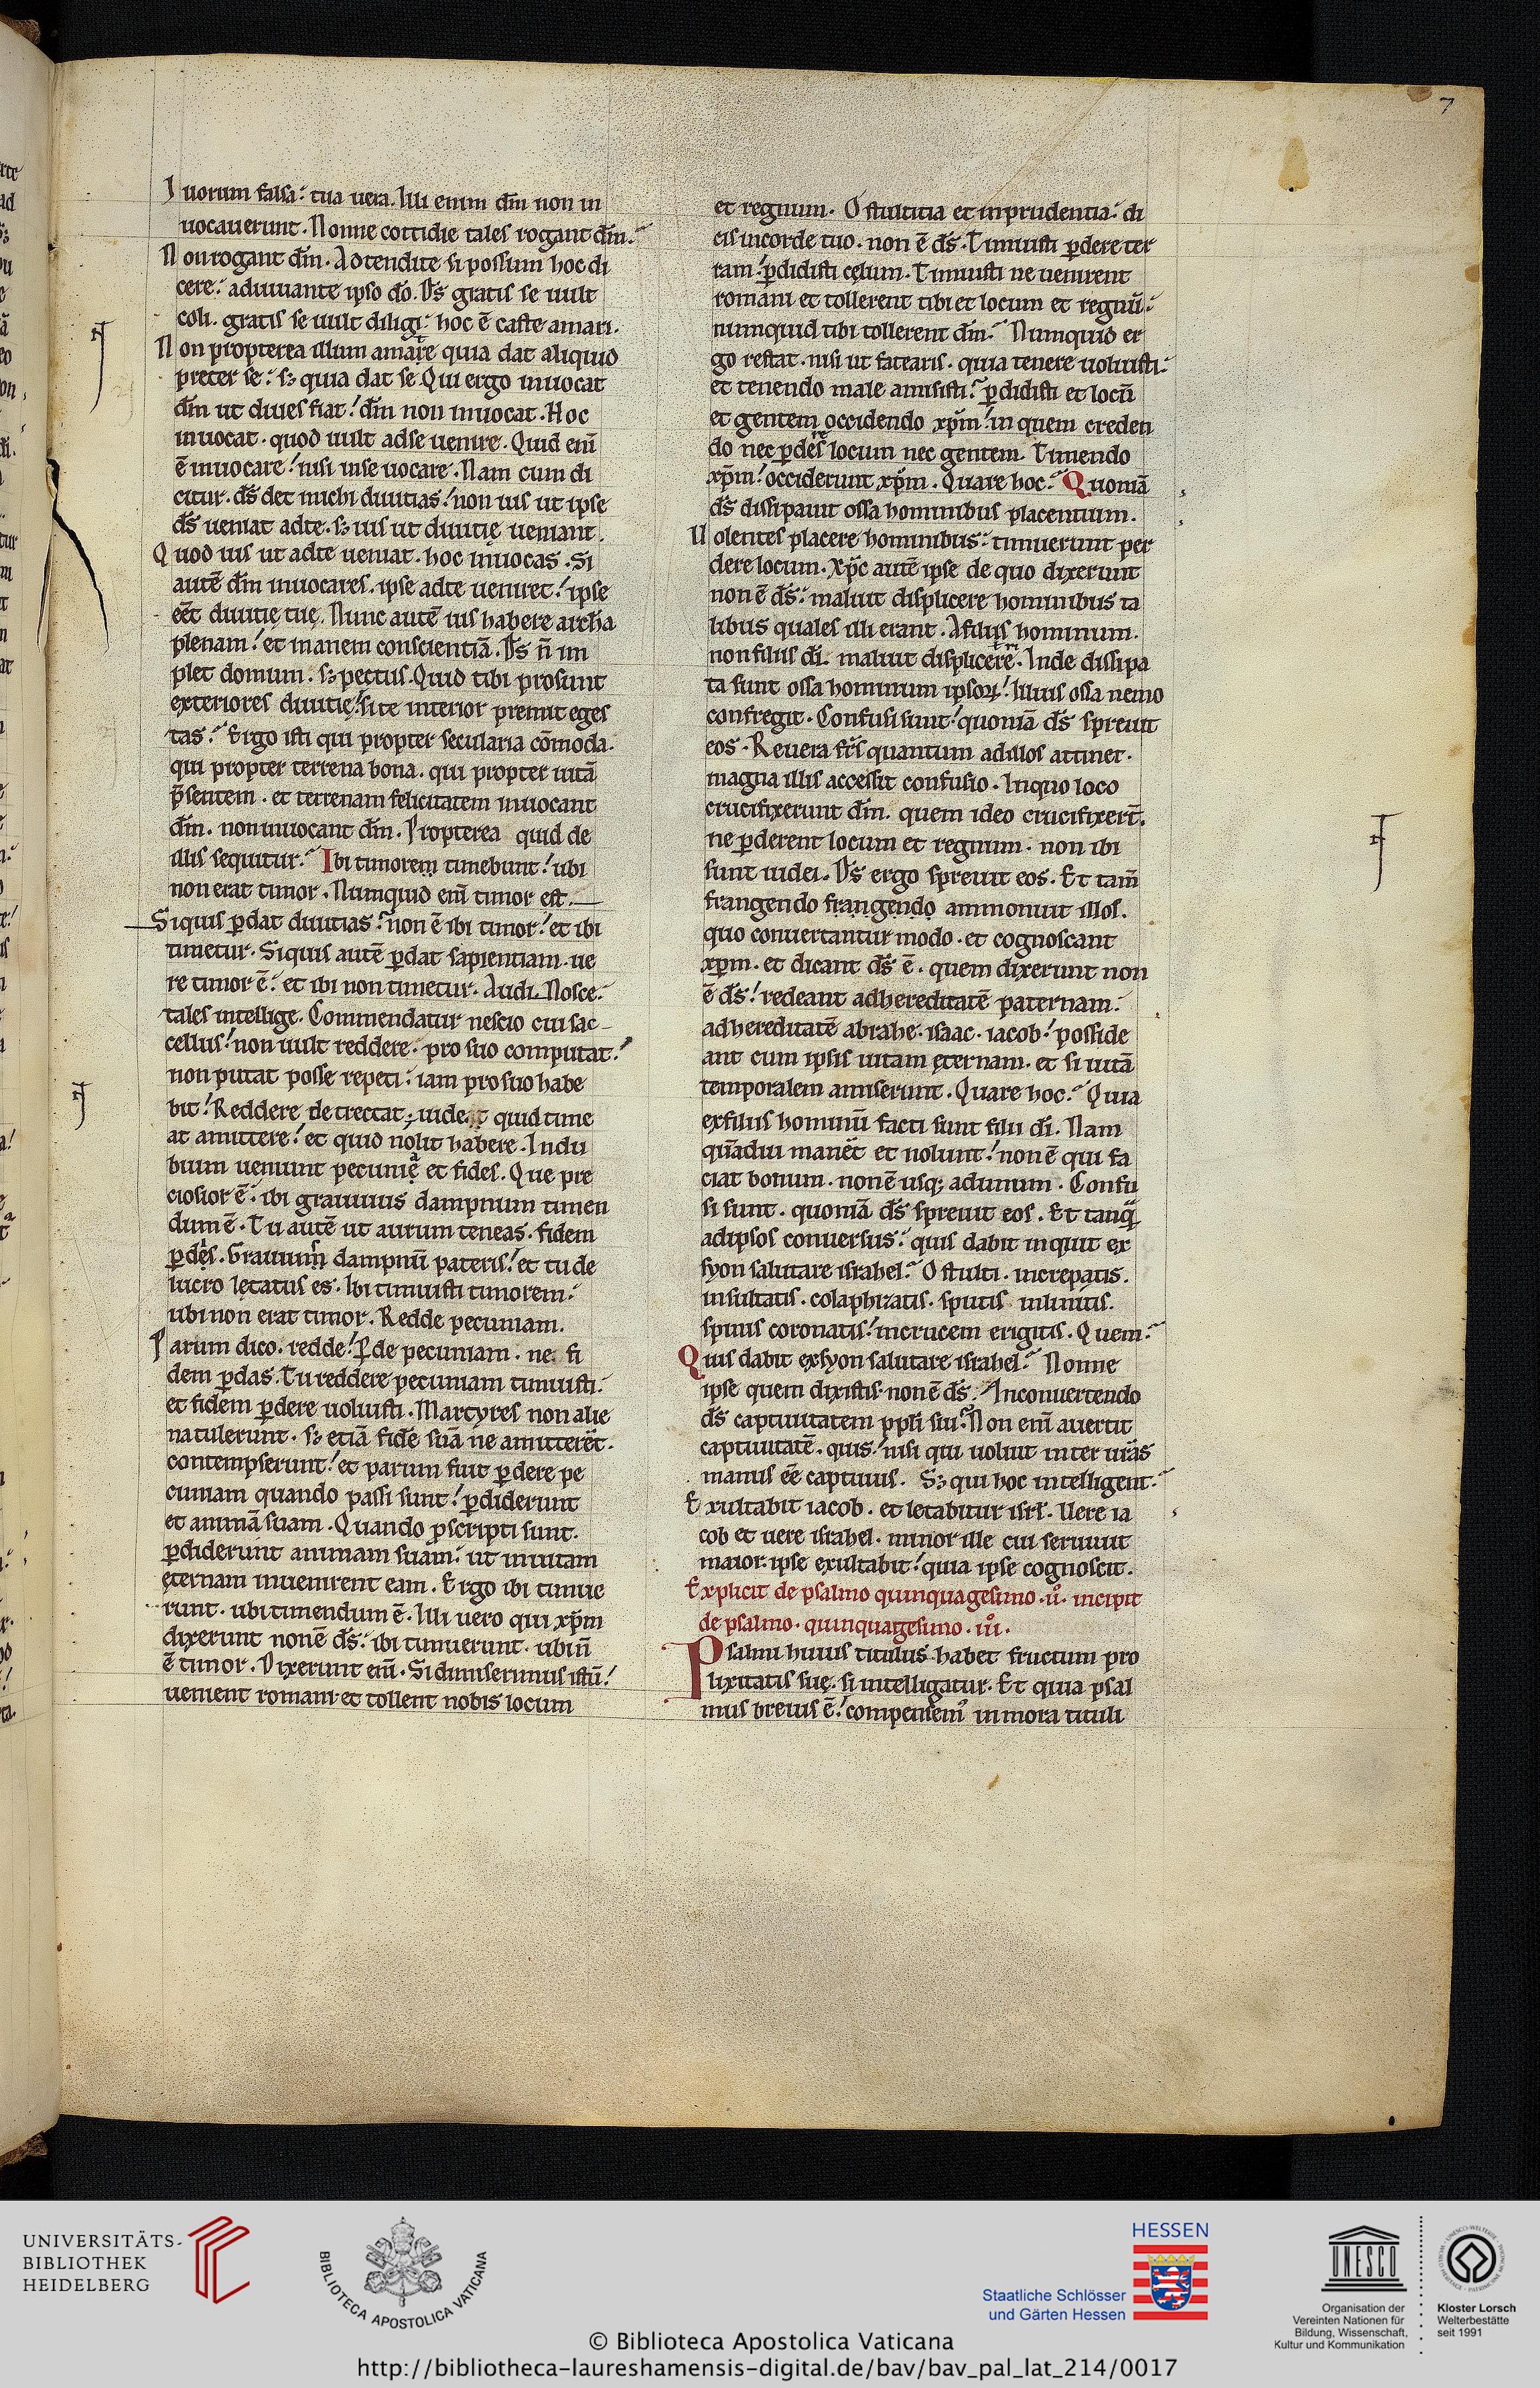 7
I uorum falsa. tua uera. Illi enim dm̄ non in
uocauerunt. Nonne cottidie tales rogant dm̄.
Non rogant dm̄. Adtendite si possum hoc di
cere. adiuuante ipso dō. Ds̄ gratis se uult
coli. gratis se uult diligi. hoc ē caste amari.
Non propterea illum amare quia dat aliquid
preter se. sꝫ quia dat se. Qui ergo inuocat
dm̄ ut diues fiat. dm̄ non inuocat. Hoc
inuocat. quod uult ad se uenire. Quid enī
ē inuocare. nisi in se uocare. Nam cum di
citur. ds̄ det michi diuitias. non uis ut ipse
ds̄ ueniat ad te. sꝫ uis ut diuitię ueniant.
Quod uis ut ad te ueniat. hoc inuocas. Si
autē dm̄ inuocares. ipse ad te ueniret. ipse
eēt diuitię tuę. Nunc autē uis habere archā
plenam. et inanem conscientiā. Ds̄ n̄ im
plet domum. sꝫ pectus. Quid tibi prosunt
exteriores diuitię. si te interior premit eges
tas. Ergo isti qui propter secularia cōmoda.
qui propter terrena bona. qui propter uitā
p̄sentem. et terrenam felicitatem inuocant
dm̄. non inuocant dm̄. Propterea quid de
illis sequitur. Ibi timorem timebunt. ubi
non erat timor. Numquid enī timor est.
Si quis ꝑdat diuitias. non ē ibi timor. et ibi
timetur. Si quis autē ꝑdat sapientiam. ue
re timor ē. et ibi non timetur. Audi. Nosce.
tales intellige. Commendatur nescio cui sac-
cellus. non uult reddere. pro suo computat.
non putat posse repeti. iam pro suo habe
bit. Reddere detrectat; uideat quid time
at amittere. et quid nolit habere. In du
bium ueniunt pecunię et fides. Que pre
ciosior ē. ibi grauius dampnum timen
dum ē. Tu autē ut aurum teneas. fidem
ꝑdes. Grauiori dampnū pateris. et tu de
lucro lętatus es. Ibi timuisti timorem.
ubi non erat timor. Redde pecuniam.
Parum dico. redde. ꝑde pecuniam. ne fi
dem ꝑdas. Tu reddere pecuniam timuisti.
et fidem ꝑdere uoluisti. Martyres non alie
na tulerunt. sꝫ etiā fidē suā ne amitterēt.
contempserunt. et parum fuit ꝑdere pe
cuniam quando passi sunt. ꝑdiderunt
et animā suam. Quando ꝓscripti sunt.
ꝑdiderunt animam suam. ut in uitam
ęternam inuenirent eam. Ergo ibi timue
runt. ubi timendum ē. Illi uero qui xp̄m
dixerunt non ē ds̄. ibi timuerunt. ubi n̄
ē timor. Dixerunt enī. Si dimiserimus istū.
uenient romani et tollent nobis locum
et regnum. O stultitia et inprudentia. di
cis in corde tuo. non ē ds̄. Timuisti ꝑdere ter
ram. ꝑdidisti cęlum. Timuisti ne uenirent
romani et tollerent tibi et locum et regnū.
numquid tibi tollerent dm̄. Numquid er
go restat. nisi ut fatearis. quia tenere uoluisti.
et tenendo male amisisti. ꝑdidisti et locū
et gentem occidendo xp̄m. in quem creden
do nec ꝑdes locum nec gentem. Timendo
xp̄m. occiderunt xp̄m. Quare hoc. Quoniā
ds̄ dissipauit ossa hominibus placentium.
Uolentes placere hominibus. timuerunt per
dere locum. Xp̄c autē ipse de quo dixerunt
non ē ds̄. maluit displicere hominibus ta
libus quales illi erant. A filiis hominum.
non filiis dī. maluit displicere. Inde dissipa
ta sunt ossa hominum ipsoꝝ. Illius ossa nemo
confregit. Confusi sunt. quoniā ds̄ spreuit
eos. Reuera fr̄s quantum ad illos attinet.
magna illis accessit confusio. In quo loco
crucifixerunt dm̄. quem ideo crucifixert̄.
ne ꝑderent locum et regnum. non ibi
sunt iudei. Ds̄ ergo spreuit eos. Et tam̄
frangendo frangendo ammonuit illos.
quo conuertantur modo. et cognoscant
xp̄m. et dicant ds̄ ē. quem dixerunt non
ē ds̄. redeant ad hereditatē paternam.
ad hereditatē abrahe. isaac. iacob. posside
ant cum ipsis uitam ęternam. et si uitā
temporalem amiserunt. Quare hoc. Quia
ex filiis hominū facti sunt filii dī. Nam
quādiu manēt et nolunt. non ē qui fa
ciat bonum. non ē usqꝫ ad unum. Confu
si sunt. quoniā ds̄ spreuit eos. Et tanq̄
ad ipsos conuersus. quis dabit inquit ex
syon salutare israhel. O stulti. increpatis.
insultatis. colaphizatis. sputis inlinitis.
spinis coronatis. in crucem erigitis. Quem.
Quis dabit ex syon salutare israhel. Nonne
ipse quem dixistis. non ē ds̄. In conuertendo
ds̄ captiuitatem ppłi sui. Non enī auertit
captiuitatē. quis. nisi qui uoluit inter ur̄as
manus eē captiuus. Sꝫ qui hoc intelligent.
Exultabit iacob. et letabitur isrł. Uere ia
cob et uere israhel. minor ille cui seruiuit
maior. ipse exultabit. quia ipse cognoscit.
Explicit de psalmo quinquagesimo .ii. incipit
de psalmo. quinquagesimo .iii.
Psalmi huius titulus habet fructum pro
lixitatis suę. si intelligatur. Et quia psal
mus breuis ē. compensem' in mora tituli
UNIVERSITÄTS-
BIBLIOTHEK
HEIDELBERG
BIBLIOTECA APOSTOLICA VATICANA
HESSEN
Staatliche Schlösser
und Gärten Hessen
UNESCO
Organisation der
Vereinten Nationen für
Bildung, Wissenschaft,
Kultur und Kommunikation
Kloster Lorsch
Welterbestätte
seit 1991
© Biblioteca Apostolica Vaticana
http://bibliotheca-laureshamensis-digital.de/bav/bav_pal_lat_214/0017